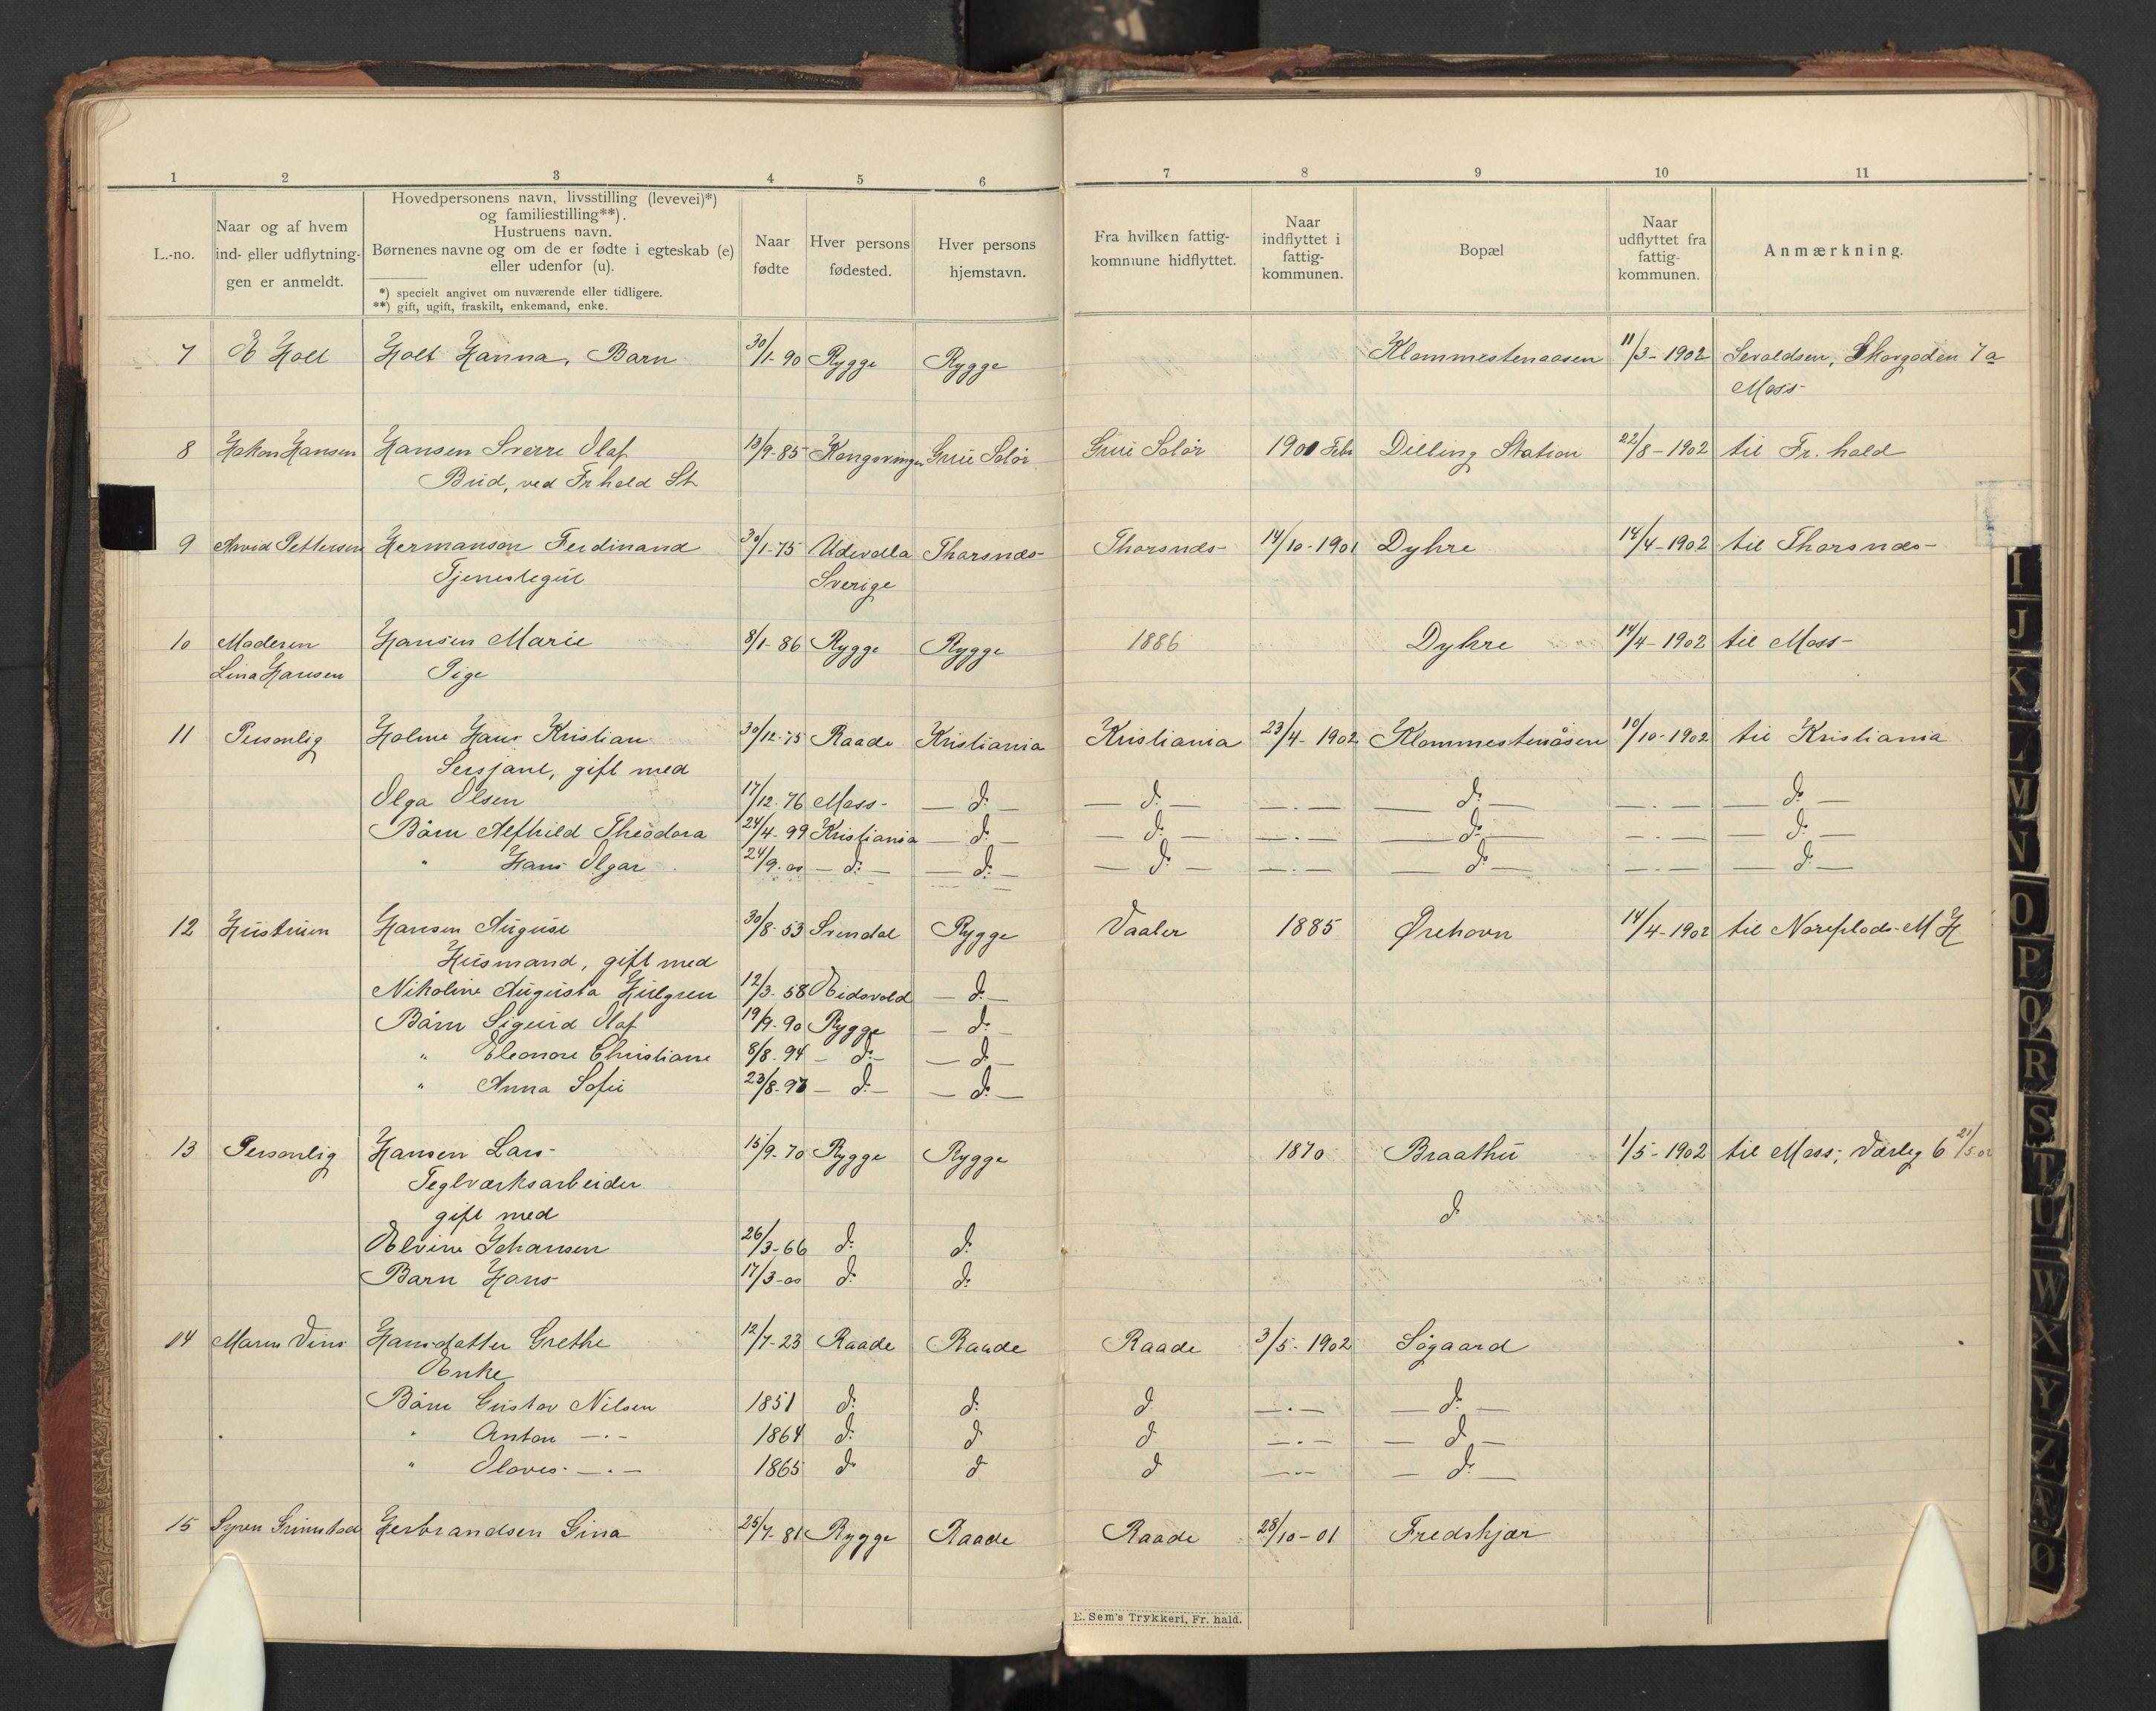 1 2 3 4 5 6 7 8 9 10 11
L.-no.
Naar og af hvem
ind- eller udflytnin-
gen er anmeldt.
Hovedpersonens navn, livsstilling (levevei)*)
og familiestilling**).
Hustruens navn.
Børnenes navne og om de er fødte i egteskab (e)
eller udenfor (u).
*) specielt angivet om nuværende eller tidligere.
**) gift, ugift, fraskilt, enkemand, enke.
Naar
fødte
Hver persons
fødested.
Hver persons
hjemstavn.
Fra hvilken fattig-
kommune hidflyttet.
Naar
indflyttet i
fattig-
kommunen.
Bopæl
Naar
udflyttet fra
fattig-
kommunen.
Anmærkning.
7 E Holt Holt Hanna, Barn 30/1-90 Rygge Rygge Klommestenaasen 11/3-1902 Sevaldsen, Skovgaden 7a
Moss
8 Hakon Hansen Hansen Sverre Olaf 13/9-85 Kongsvinger Grue Solør Grue Solør 1901 Febr Dilling Station 22/8-1902 til Fr. hald
Bud, ved Fr hald St
9 Arvid Pettersen Hermanson Ferdinand 30/1-75 Udevalla Thorsnæs Thorsnæs 14/10-1901 Dyhre 14/4-1902 til Thorsnæs
Tjenestegut Sverige
10 Moderen Hansen Marie 8/1-86 Rygge Rygge 1886 Dyhre 14/4-1902 til Moss
Lina Hansen Pige
11 Personlig Holme Hans Kristian 30/12-75 Raade Kristiania Kristiania 23/4-1902 Klommestenåsen 10/10-1902 til Kristiania
Sersjant, gift med
Olga Olsen 17/12-76 Moss — d: — — d: — — . — — d: — — . — — d: —
Børn Alfhild Theodora 24/4-99 Kristiania — d: — — d: — — . — — d: — — . — — d: —
" Hans Olgar 24/9-00 — d: — — d: — — d: — — . — — d: — — . — — d: —
12 Hustruen Hansen August 30/8-53 Svendal Rygge Vaaler 1885 Ørehavn 14/4-1902 til Noreplads M H
Husmand, gift med
Nikoline Augusta Hulgren 12/3-58 Eidsvold — d: —
Børn Sigurd Olaf 19/9-90 Rygge — d: —
" Eleonore Christiane 8/8-94 — d: — — d: —
" Anna Sofie 23/8-97 — d: — — d: —
13 Personlig Hansen Lars 15/9-70 Rygge Rygge 1870 Braathu 1/5-1902 til Moss, Værleg 6 21/5 02
Teglværksarbeider
gift med d
Elvine Johansen 26/3-66 d: d:
Barn Hans 17/3-00 d: d:
14 Maren Hansdatter Grethe 12/7-23 Raade Raade Raade 3/5-1902 Søgaard
Enke
Børn Gustav Nilsen 1851 d: d: d — . — — d: —
" Anton — . — 1864 d: d d — . — — d —
" Oloves — . — 1865 d d d — . — — d: —
15 Syver Grimstad Herbrandsen Gina 25/7-81 Rygge Raade Raade 28/10-01 Fredskjær
E. Sem's Trykkeri, Fr. hald.
I
J
K
L
M
N
O
P
Q
R
S
T
U
W
X
Y
Z
Ø